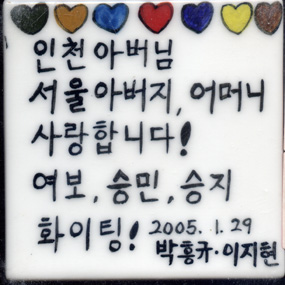 인천아버님
서울아버지, 어머니
사랑합니다!
여보, 승민, 승지
화이팅! 2005. 1. 29
박홍규·이지현